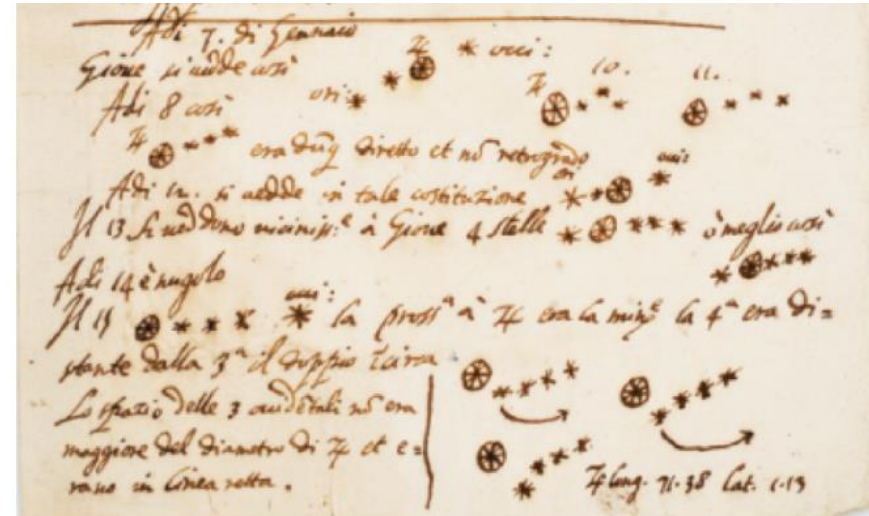 Adi 7. di Gennaio
Gioue si uedde cosi ori: ♃ occi:
Adi 8 cosi ♃ 10. 11.
♃ era dũq diretto et nõ retrogrado
Adi 12. si uedde in tale costituzione ori occi:
Il 13 si ueddono uiciniss.e à Gioue 4 stelle ò meglio cosi
Adi 14 è nugolo
Il 15 occi: la pross.a à ♃ era la min.e la 4.a era di=
stante dalla 3.a il doppio Circa
Lo spazio delle 3 occidẽtali nõ era
maggiore del diametro di ♃ et e=
rano in linea retta.
♃ long. 71.38 Lat. 1.13